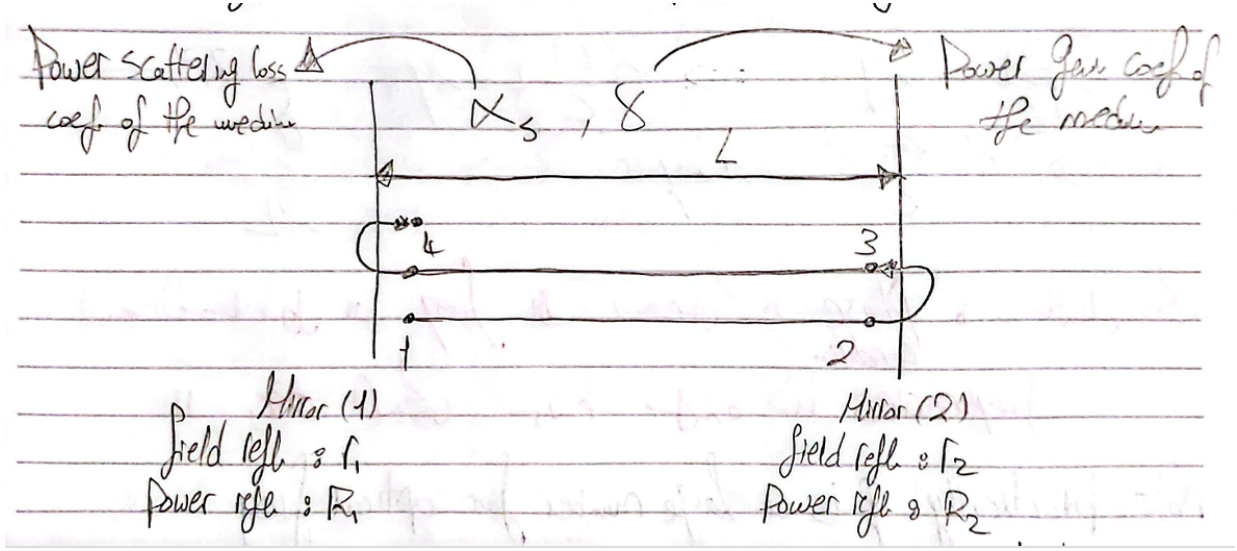 Power scattering loss
coef of the medium
αs , γ
Power Gain coef of
the medium
L
4
3
1
2
Mirror (1)
field refl : r₁
Power refl : R₁
Mirror (2)
field refl : r₂
Power refl : R₂